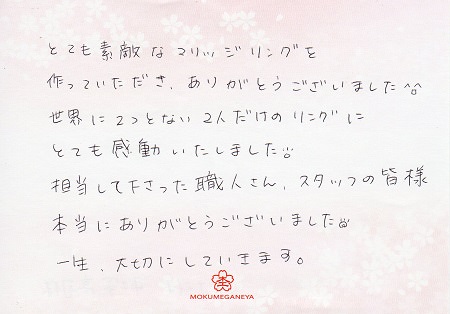 とても素敵なマリッジリングを
作っていただき、ありがとうございました^^
世界に2つとない2人だけのリングに
とても感動いたしました
担当して下さった職人さん、スタッフの皆様
本当にありがとうございました
一生、大切にしていきます。
MOKUMEGANEYA